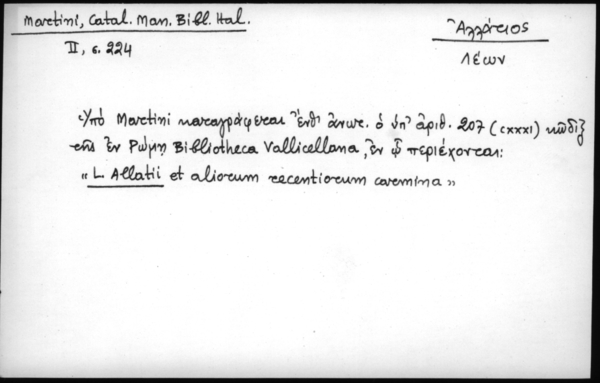 Martini, Catal. Man. Bibl. Ital.
II, σ. 224
Ἀλλάτιος
Λέων
Ὑπὸ Martini καταγράφεται ἔνθ' ἀνωτ. ὁ ὑπ' ἀριθ. 207 (CXXXI) κῶδιξ
τῆς ἐν Ρώμῃ Bibliotheca Vallicellana, ἐν ᾧ περιέχονται:
« L. Allatii et aliorum recentiorum carmina »